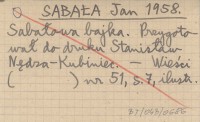 SABAŁA Jan 1958.
Sabałowa bajka. Przygoto-
wał do druku Stanisław
Nędza-Kubiniec. — Wieści
( ) nr 51, s. 7, ilustr.